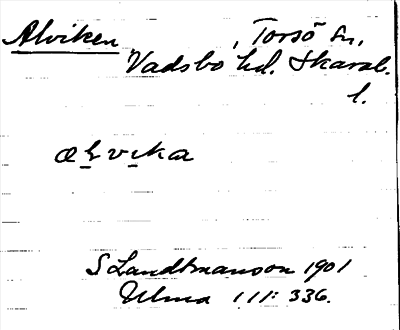 Alviken, Torsö sn,
Vadsbo hd. Skarab.
l.
alvika
S Landtmanson 1901
Ulma 111: 336.